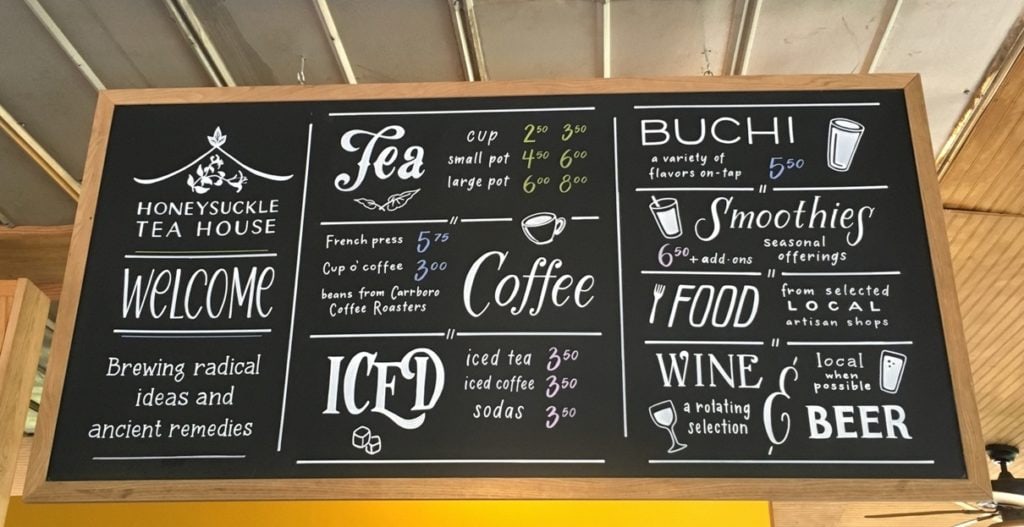 HONEYSUCKLE
TEA HOUSE
WELCOME
Brewing radical
ideas and
ancient remedies
Tea
cup 2⁵⁰ 3⁵⁰
small pot 4⁵⁰ 6⁰⁰
large pot 6⁰⁰ 8⁰⁰
French press 5⁷⁵
Cup o' coffee 3⁰⁰
beans from Carrboro
Coffee Roasters
Coffee
ICED
iced tea 3⁵⁰
iced coffee 3⁵⁰
sodas 3⁵⁰
BUCHI
a variety of
flavors on-tap 5⁵⁰
Smoothies
6⁵⁰ + add-ons
seasonal
offerings
FOOD
from selected
LOCAL
artisan shops
WINE
a rotating
selection
&
local
when
possible
BEER